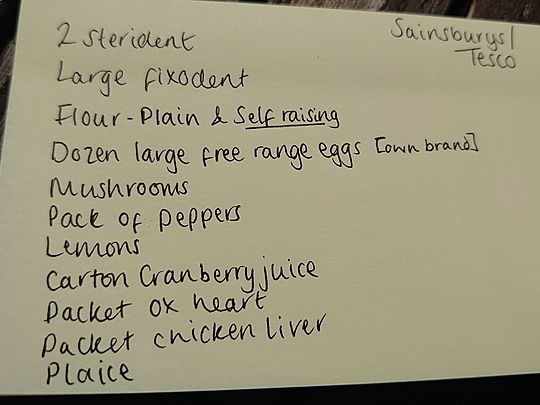 Sainsburys/
Tesco
2 sterident
Large fixodent
Flour - Plain & Self raising
Dozen large free range eggs [own brand]
Mushrooms
Pack of peppers
Lemons
Carton Cranberry juice
Packet ox heart
Packet chicken liver
Plaice